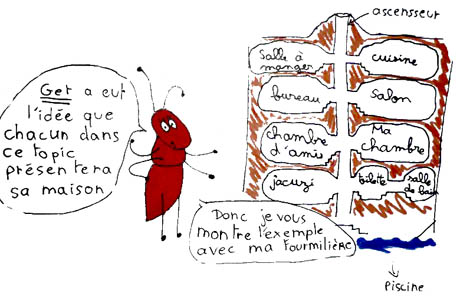 Get a eut
l'idée que
chacun dans
ce topic
présentera
sa maison
Donc je vous
montre l'exemple
avec ma fourmilière
ascensseur
Salle à
manger
cuisine
bureau
salon
chambre
d'amis
Ma
chambre
jacuzi
toilette
salle
de bain
Piscine